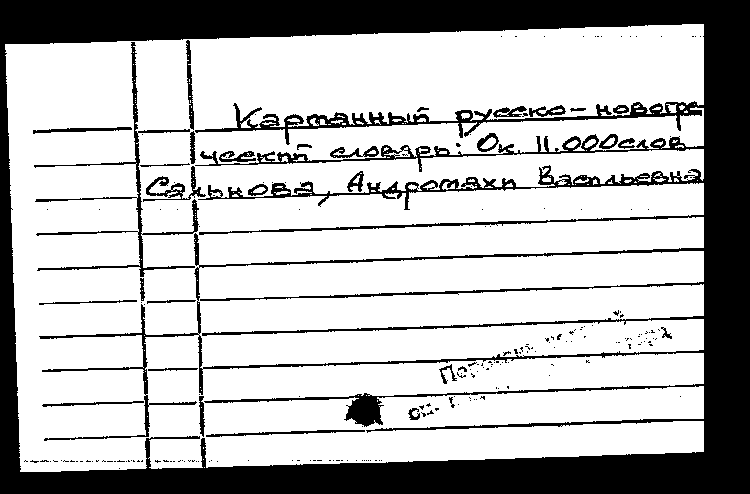 Карманный русско-новогре-
ческий словарь: Ок. 11.000 слов
Сальнова, Андромахи Васильевна